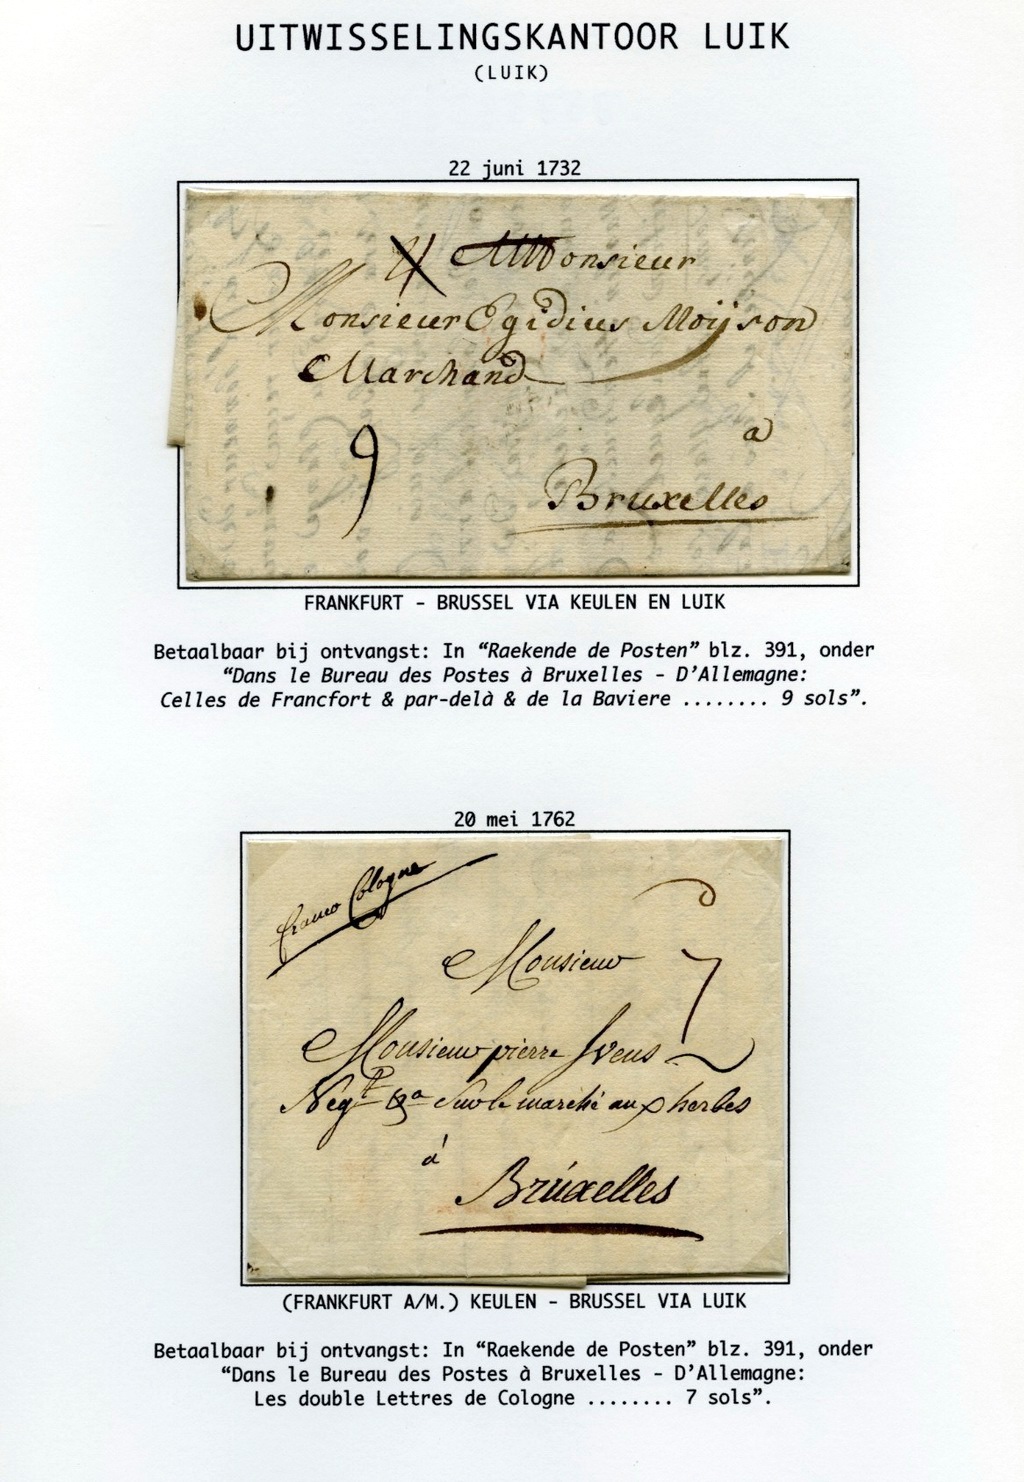 UITWISSELINGSKANTOOR LUIK
(LUIK)
22 juni 1732
4 Monsieur
Monsieur Egidius Moijson
Marchand
9
a
Bruxelles
FRANKFURT - BRUSSEL VIA KEULEN EN LUIK
Betaalbaar bij ontvangst: In “Raekende de Posten” blz. 391, onder
“Dans le Bureau des Postes à Bruxelles - D’Allemagne:
Celles de Francfort & par-delà & de la Baviere ........ 9 sols”.
20 mei 1762
franco Cologne
Monsieur
7
Monsieur pierre Ivens
Negt sur le marché aux herbes
á
Brúxelles
(FRANKFURT A/M.) KEULEN - BRUSSEL VIA LUIK
Betaalbaar bij ontvangst: In “Raekende de Posten” blz. 391, onder
“Dans le Bureau des Postes à Bruxelles - D’Allemagne:
Les double Lettres de Cologne ........ 7 sols”.